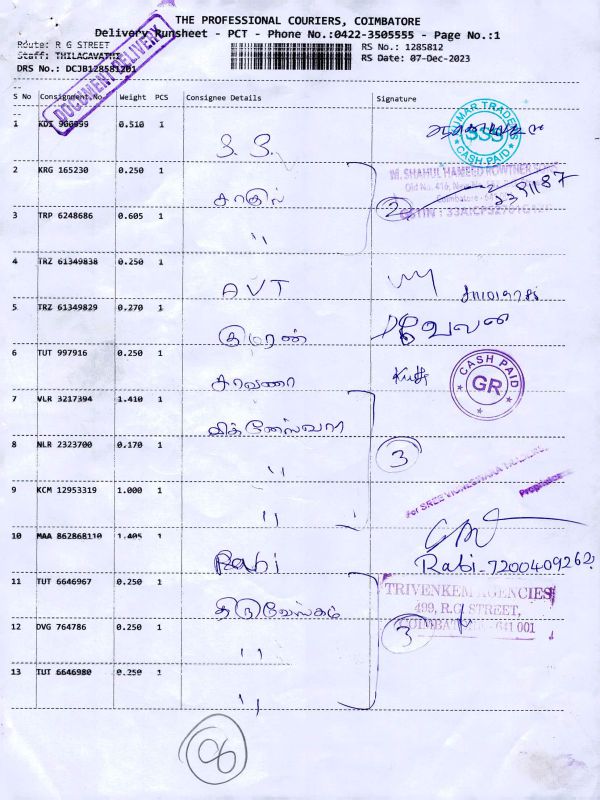 THE PROFESSIONAL COURIERS, COIMBATORE
Delivery Runsheet - PCT - Phone No.:0422-3505555 - Page No.:1
Route: R G STREET
RS No.: 1285812
Staff: THILAGAVATHI
RS Date: 07-Dec-2023
DRS No.: DCJB128581201
DOCUMENT DELIVERY
S No Consignment.No Weight PCS Consignee Details Signature
1 KDI 900999 0.510 1 S.S.
KUMAR TRADERS
SSS
CASH PAID
2 KRG 165230 0.250 1 சாகுல்
M. SHAHUL HAMEED ROWTHER
Old No. 416,
Coimbatore
GSTIN : 33
2
3 TRP 6248686 0.605 1 "
4 TRZ 61349838 0.250 1 AVT
5 TRZ 61349829 0.270 1 குமரன் வேலன்
6 TUT 997916 0.250 1 சரவணா
CASH PAID
GR
7 VLR 3217394 1.410 1 விக்னேஸ்வரா
3
8 NLR 2323700 0.170 1 "
For SREE VIGNESWARA
9 KCM 12953319 1.000 1 "
10 MAA 862868110 1.405 1 Rabi Rabi-7200409262
11 TUT 6646967 0.250 1 திருவேங்கடம்
TRIVENKEM AGENCIES
499, R.G. STREET,
COIMBATORE - 641 001
3
12 DVG 764786 0.250 1 "
13 TUT 6646980 0.250 1 "